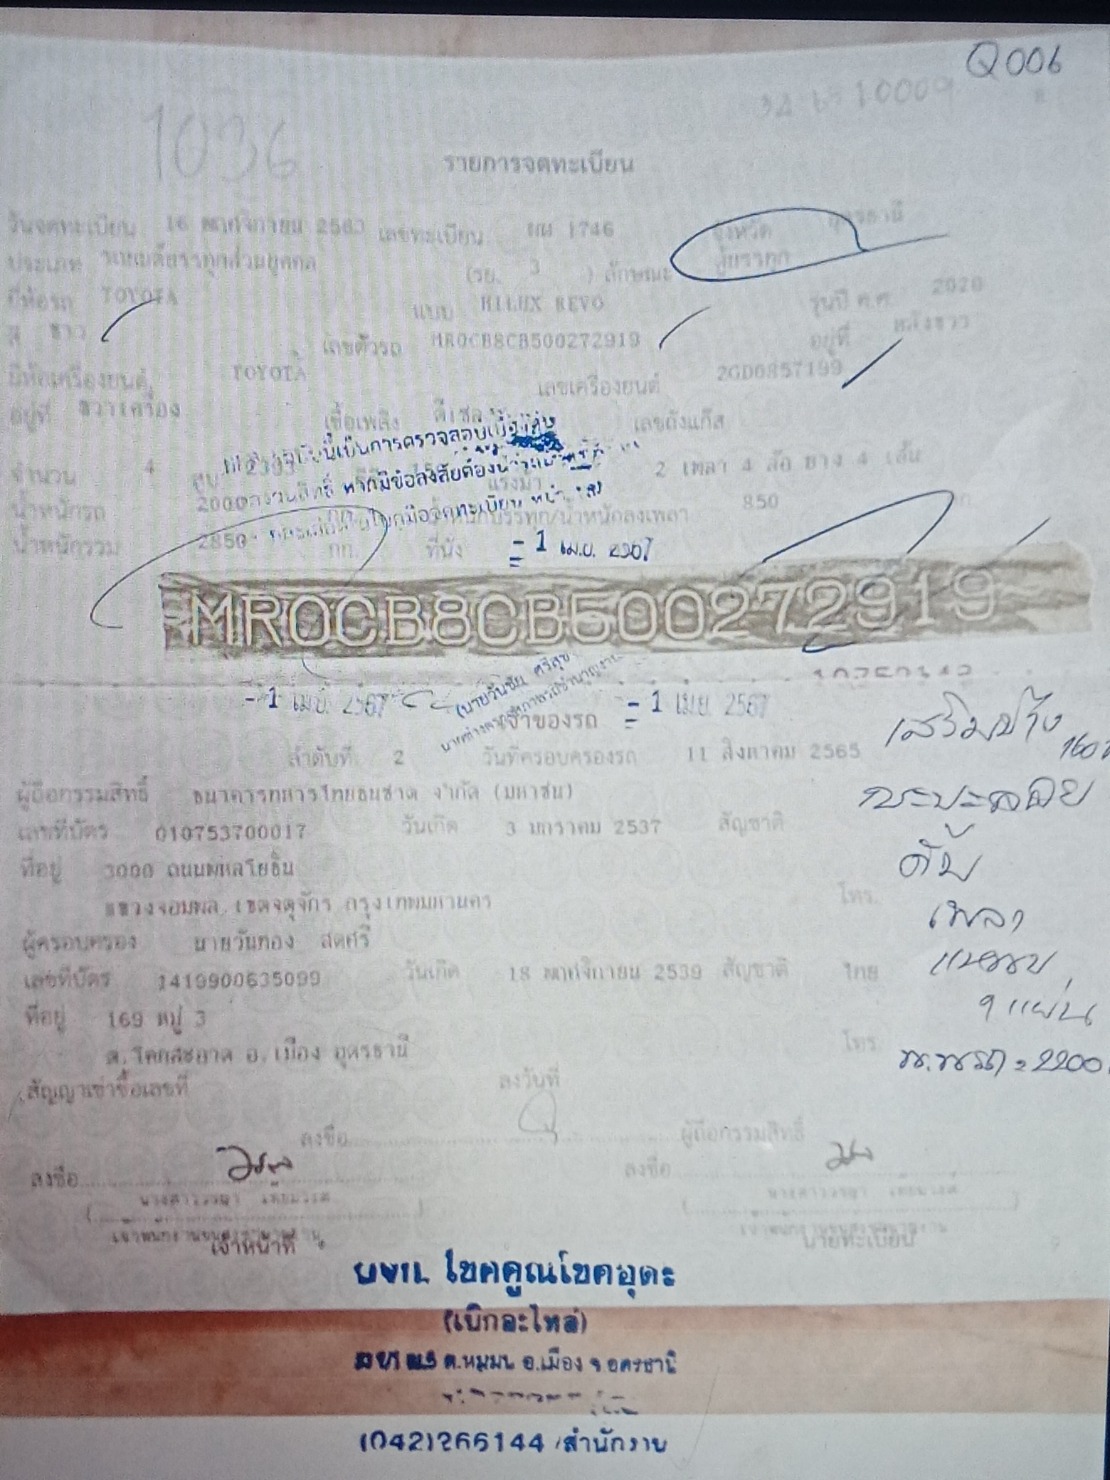 Q006
1036
รายการจดทะเบียน
วันจดทะเบียน 16 พฤศจิกายน 2563 เลขทะเบียน ผผ 1746 จังหวัด อุดรธานี
ประเภท รถยนต์บรรทุกส่วนบุคคล (รย. 3 ) ลักษณะ ตู้บรรทุก
ยี่ห้อรถ TOYOTA แบบ HILUX REVO รุ่นปี ค.ศ. 2020
สี ขาว เลขตัวรถ MR0CB8CB500272919 อยู่ที่ หลังขวา
ยี่ห้อเครื่องยนต์ TOYOTA เลขเครื่องยนต์ 2GD0857199
อยู่ที่ ขวาเครื่อง เชื้อเพลิง ดีเซล เลขถังแก๊ส
นี้เป็นการตรวจสอบเบื้องต้น
จำนวน 4 สูบ 2393 แรงม้า 2 เพลา 4 ล้อ ยาง 4 เส้น
หากมีข้อสงสัยต้อง
น้ำหนักรถ 2000 น้ำหนักบรรทุก/น้ำหนักลงเพลา 850 กก.
น้ำหนักรวม 2850 กก. ที่นั่ง
- 1 เม.ย. 2567
MR0CB8CB500272919
- 1 เม.ย. 2567
(นายวันชัย ศรีสุข
เจ้าของรถ
- 1 เม.ย. 2567
ลำดับที่ 2 วันที่ครอบครองรถ 11 สิงหาคม 2565
ผู้ถือกรรมสิทธิ์ ธนาคารทหารไทยธนชาต จำกัด (มหาชน)
เลขที่บัตร 010753700017 วันเกิด 3 มกราคม 2537 สัญชาติ
ที่อยู่ 3000 ถนนพหลโยธิน
แขวงจอมพล เขตจตุจักร กรุงเทพมหานคร โทร.
ผู้ครอบครอง นายวันทอง สดศรี
เลขที่บัตร 1419900635099 วันเกิด 18 พฤศจิกายน 2539 สัญชาติ ไทย
ที่อยู่ 169 หมู่ 3
ต.โคกสะอาด อ.เมือง อุดรธานี โทร.
สัญญาเช่าซื้อเลขที่ ลงวันที่
ลงชื่อ ผู้ถือกรรมสิทธิ์
ลงชื่อ ลงชื่อ
เจ้าหน้าที่ นายทะเบียน
เพลา
แหนบ
9 แผ่น
น.น.รถ = 2200
ผจก. โชคคูณโชคอุดร
(เบิกอะไหล่)
อ.เมือง จ.อุดรธานี
(042)266144 /สำนักงาน